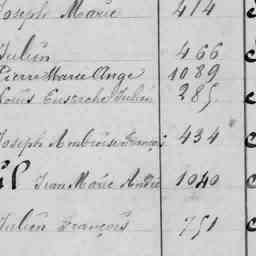 Joseph Marie 414
Julien 466
Pierre Marie Ange 1089
Louis Eustache Julien 285
Joseph Ambroise François 434
il Jean Marie André 1040
Julien François 751